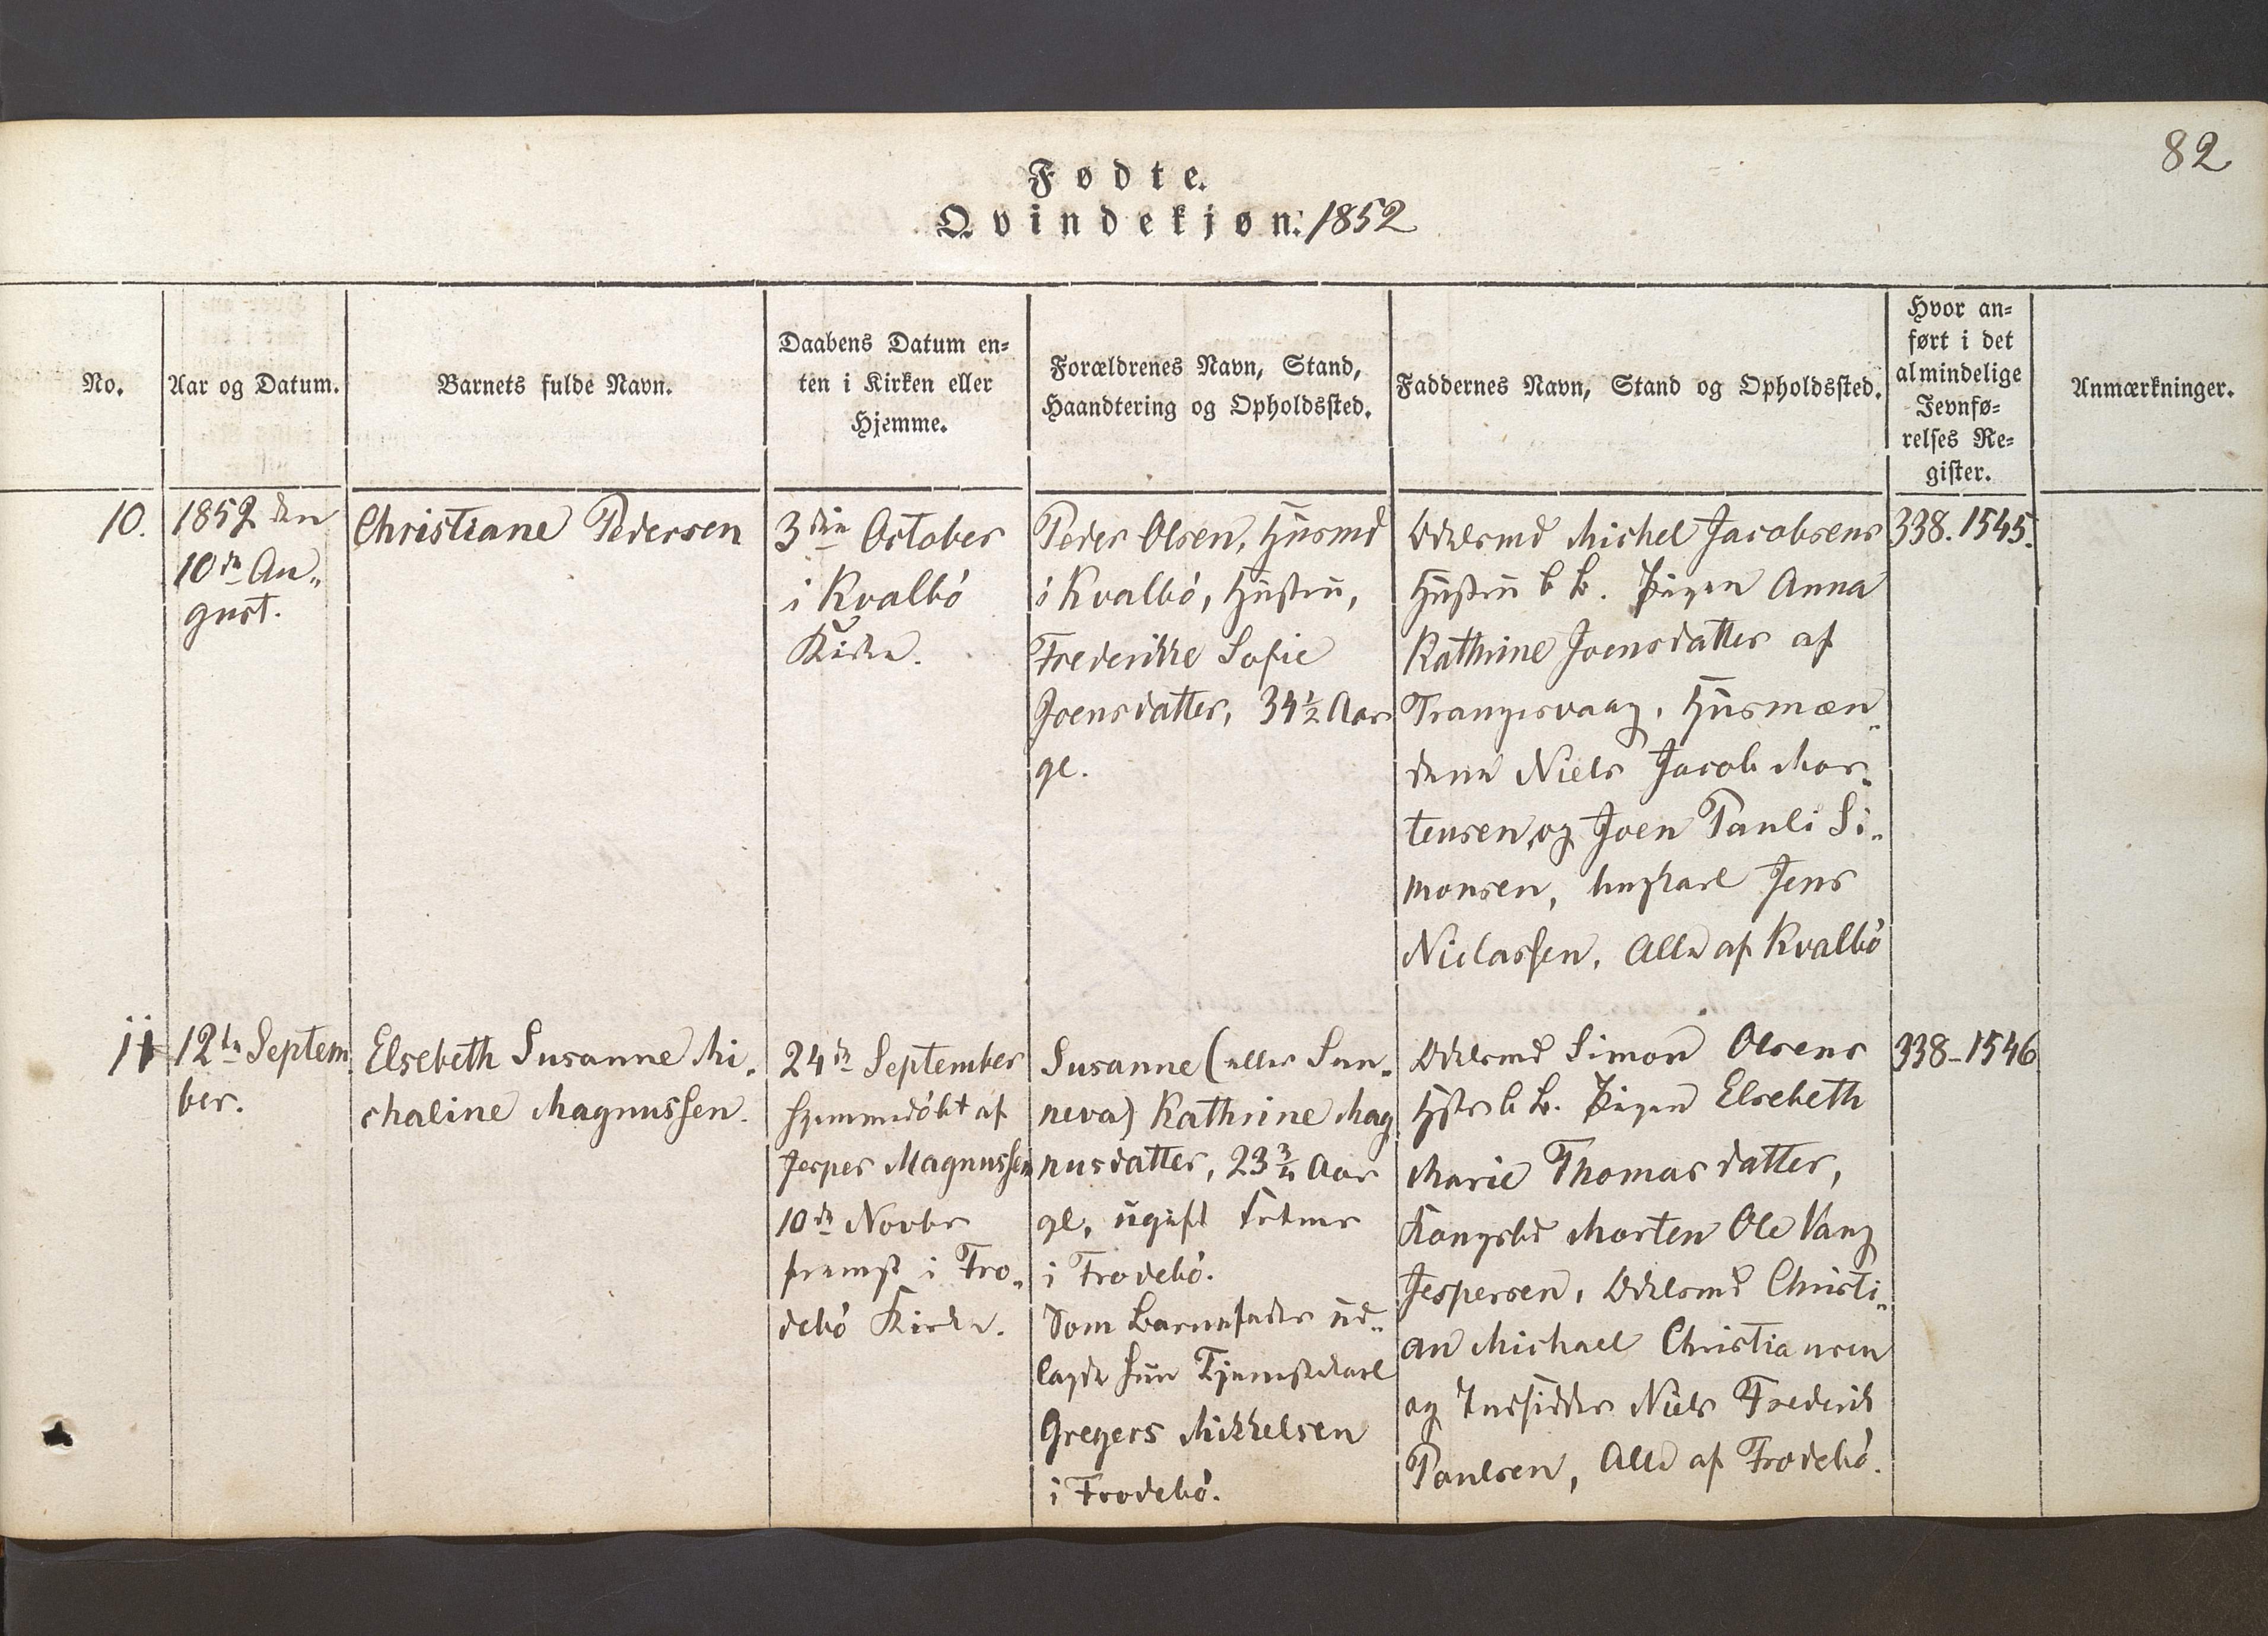 82
Fødte.
Qvindekjøn: 1852
No.
Aar og Datum.
Barnets fulde Navn.
Daabens Datum en=
ten i Kirken eller
Hjemme.
Forældrenes Navn, Stand,
Haandtering og Opholdssted.
Faddernes Navn, Stand og Opholdssted.
Hvor an=
ført i det
almindelige
Jevnfø=
relses Re=
gister.
Anmærkninger.
10.
1852 den
10de Au„
gust.
Christiane Pedersen
3die October
i Kvalbö
Kirke.
Peder Olsen, Husmd
i Kvalbö, Hustru,
Frederikke Sofie
Joensdatter, 34½ Aar
gl.
Odelsmd Michel Jacobsens
Hustru b B. Pigen Anna
Kathrine Joensdatter af
Trangisvaag, Husmæn„
dene Niels Jacob Mor„
tensen, og Joen Pauli Si„
monsen, Ungkarl Jens
Niclassen, Alle af Kvalbö
338. 1545.
11
12te Septem
ber.
Elsebeth Susanne Mi„
chaline Magnussen.
24de September
hjemmedöbt af
Jesper Magnussen
10de Novbr
fremst i Fro„
debö Kirke.
Susanne (eller Sun„
neva) Kathrine Mag
nusdatter, 23¾ Aar
gl, ugift
i Frodebö.
Som Barnefader ud„
lagde hun Tjenestekarl
Gregers Mikkelsen
i Frodebö.
Odelsmd Simon Olsens
Hstr b B. Pigen Elsebeth
Marie Thomasdatter,
Kongsbd Morten Ole Vang
Jespersen, Odelsmd Christi„
an Michael Christiansen
og Indsidder Niels Frederik
Poulsen, Alle af Frodebö.
338-1546